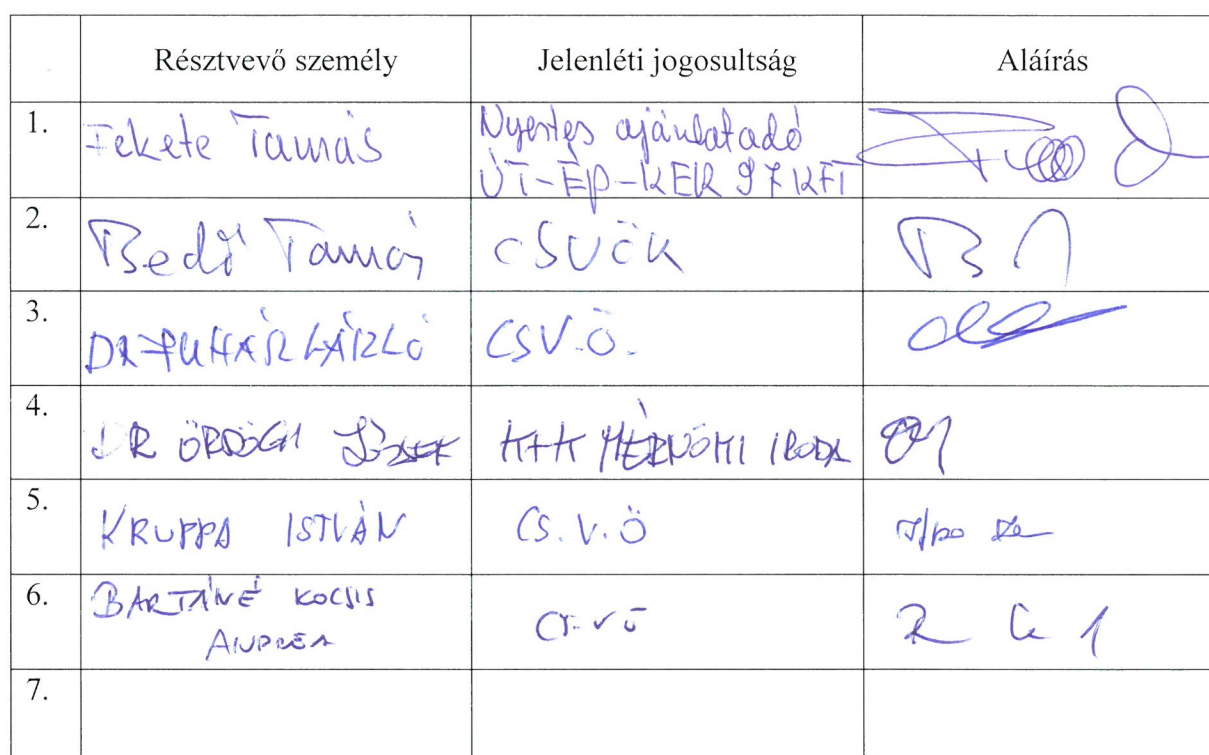 Résztvevő személy Jelenléti jogosultság Aláírás
1. Fekete Tamás Nyertes ajánlatadó
ÚT-ÉP-KER 97 KFT
2. Bedő Tamás CSVÖK
3. DR PUHÁR LÁSZLÓ CSV.Ö.
4. DR ÖRDÖGH JÓZSEF K+K MÉRNÖKI IRODA
5. KRUPPA ISTVÁN CS.V.Ö
6. BARTÁNÉ KOCSIS
ANDREA CS.VÖ
7.